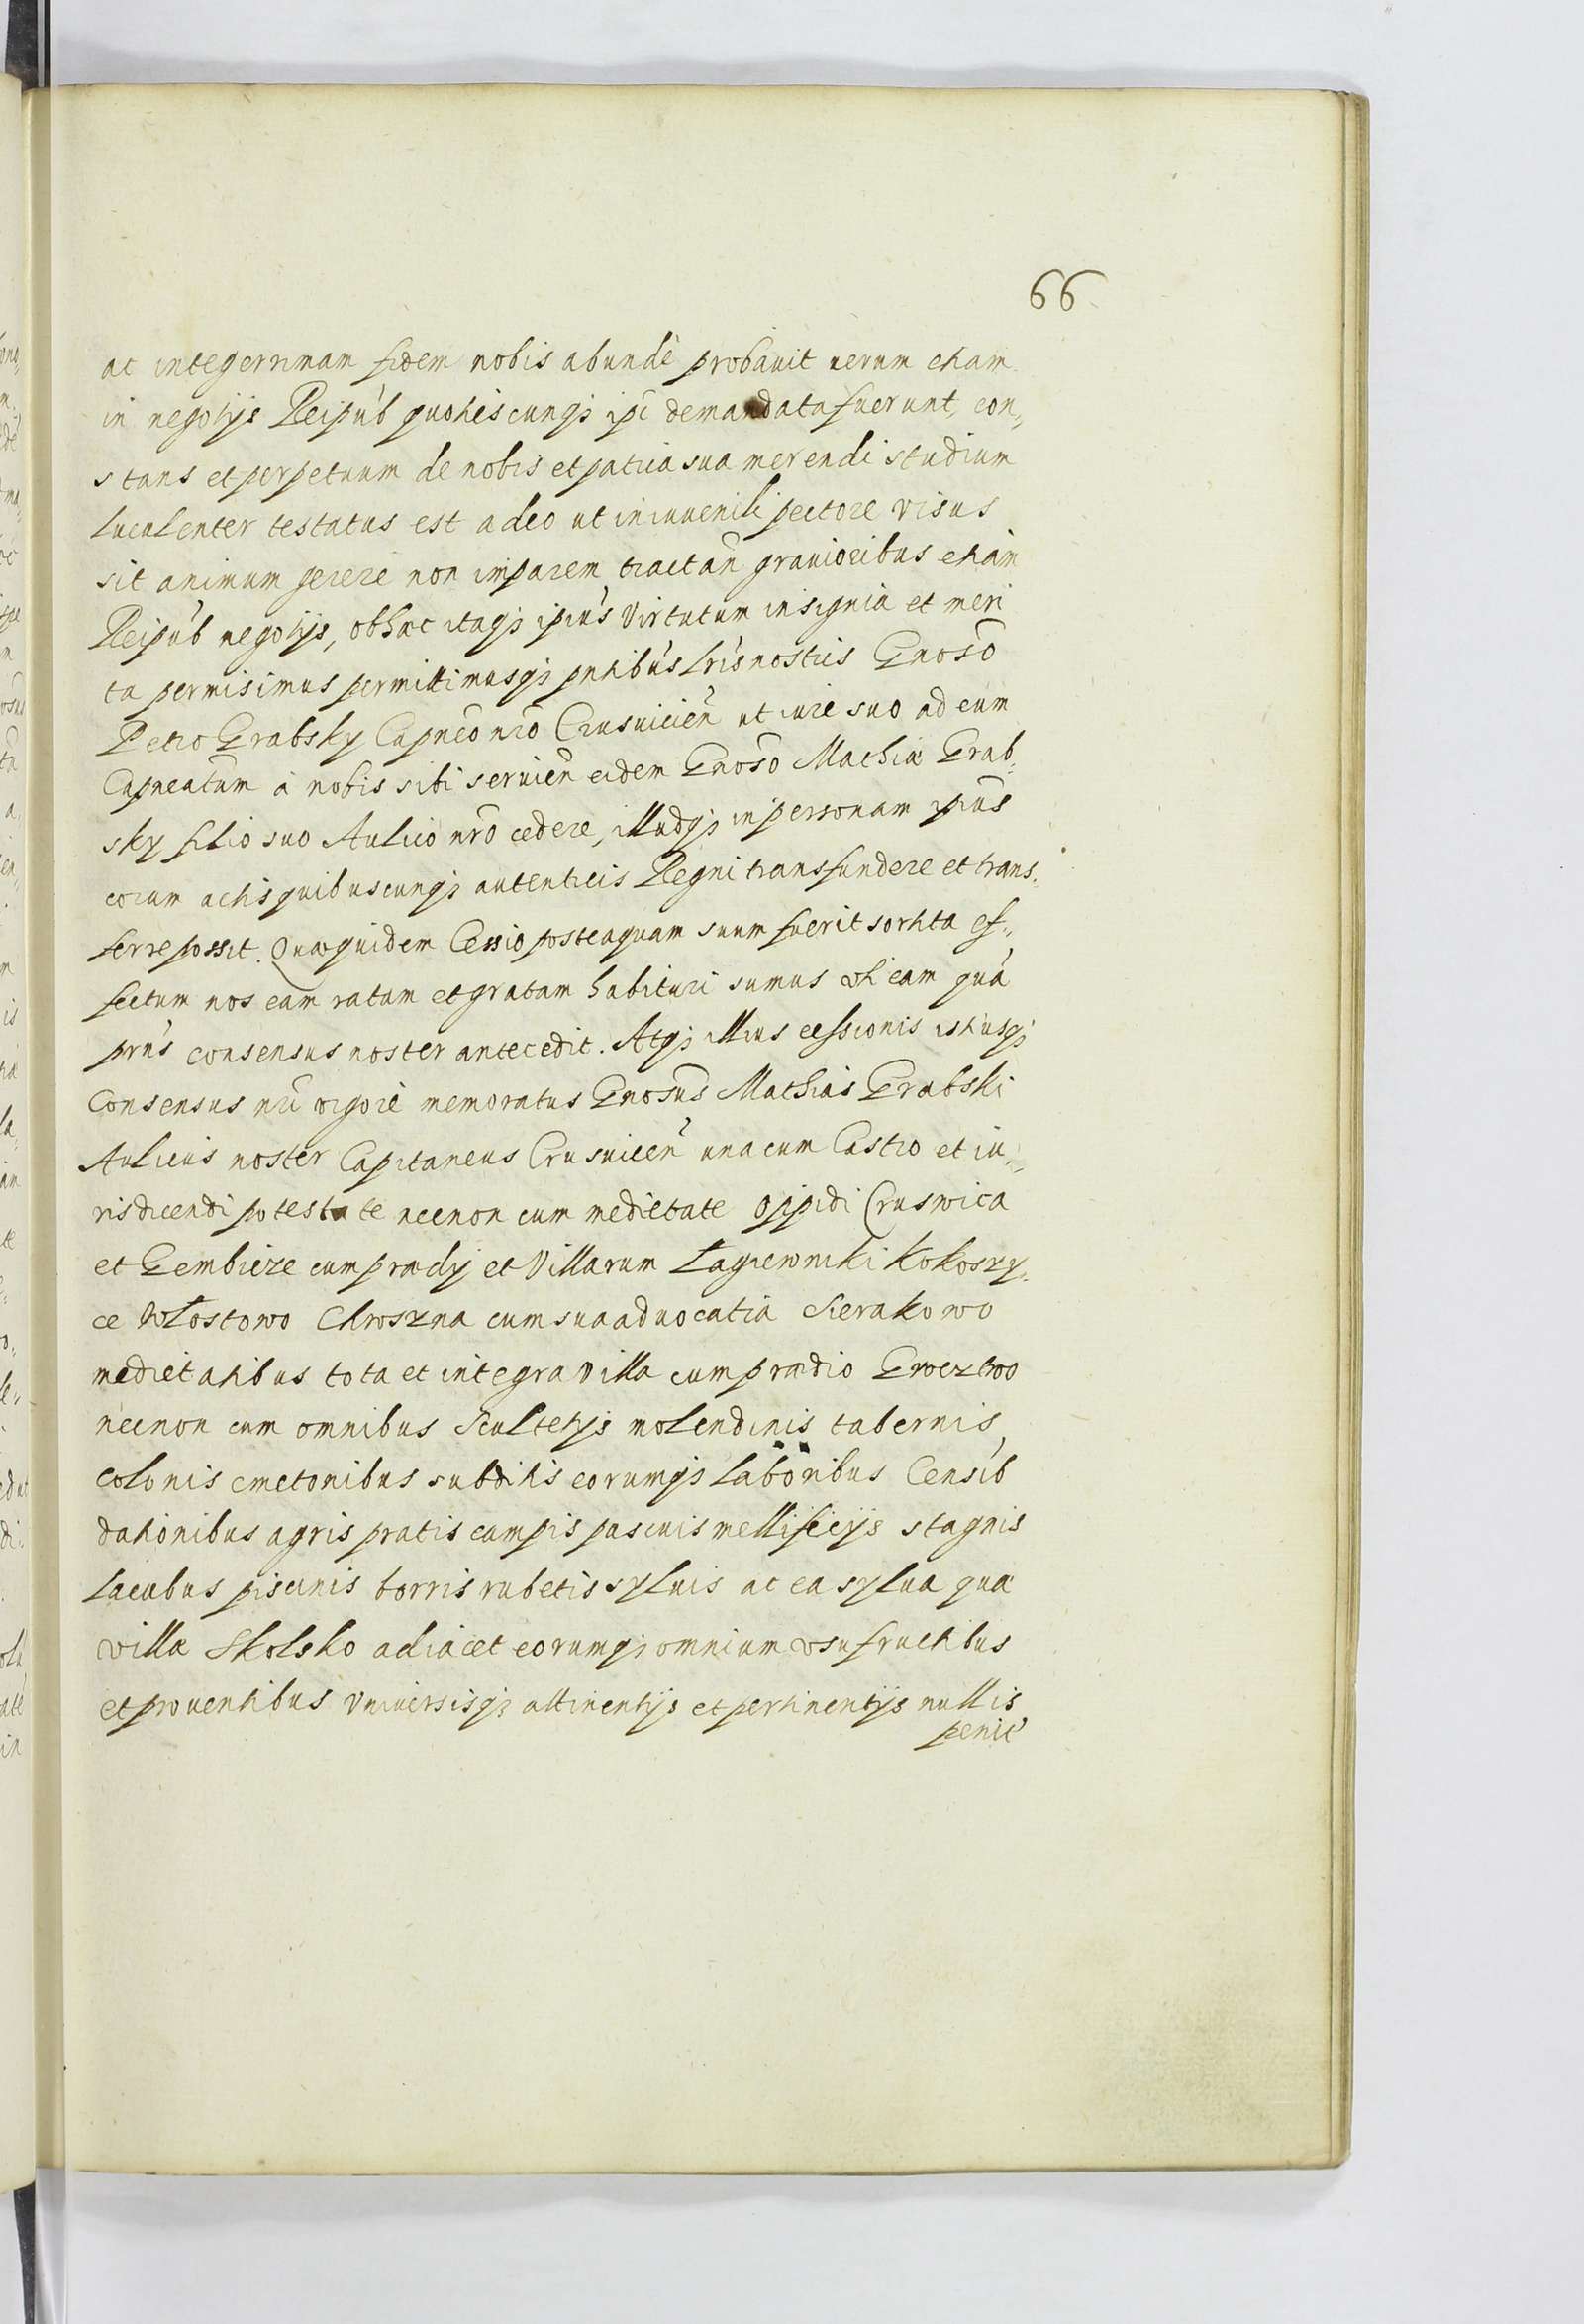 66
ac integerrimam fidem nobis abundè probauit uerum etiam
in negotijs Reipub́ quotiescunqз ipī demandata fuerunt, con„
stans et perpetuum de nobis et patria sua merendi studium
luculenter testatus est adeo ut in iuuenili pectore visus
sit animum gerere non imparem tractan̄ grauioribus etiam
Reipub́ negotijs, ob hæc itaqз ipius virtutum insignia et meri
ta permisimus permittimusqз pntibus lris nostris Gnoso
Petro Grabsky Capneo nrō Crusuicien̄ ut iure suo ad eum
Capneatum à nobis sibi seruien̄ eidem Gnoso Mathiæ Grab„
sky filio suo Aulico nrō cedere, illudqз in personam ipius
coram actis quibuscunqз autenticis Regni transfundere et trans„
ferre possit. Quæ quidem Cessio posteaquam suum fuerit sortita ef„
fectum nos eam ratam et gratam habituri sumus vti eam quā
prn̄s consensus noster antecedit. Atqз illius cessionis istiusqз
Consensus nrī vigore memoratus Gnosus Mathias Grabski
Aulicus noster Capitaneus Crusuicen̄ una cum Castro et iu„
risdicendi potestate necnon cum medietate oppidi Cruswica
et Gembicze cum prædij et Villarum Łagiewniki Kokoszy„
ce Włostowo Chroszna cum sua aduocatia Sierakowo
medietatibus tota et integra villa cum prædio Grocztwo
necnon cum omnibus Scultetijs molendinis tabernis
colonis cmetonibus subditis eorumqз laboribus Censib́
dationibus agris pratis campis pascuis mellificijs stagnis
lacubus piscinis borris rubetis syluis ac ea sylua quæ
villæ Skolsko adiacet eorumqз omnium vsufructibus
et prouentibus vniuersisqз attinentijs et pertinentijs nullis
penit́